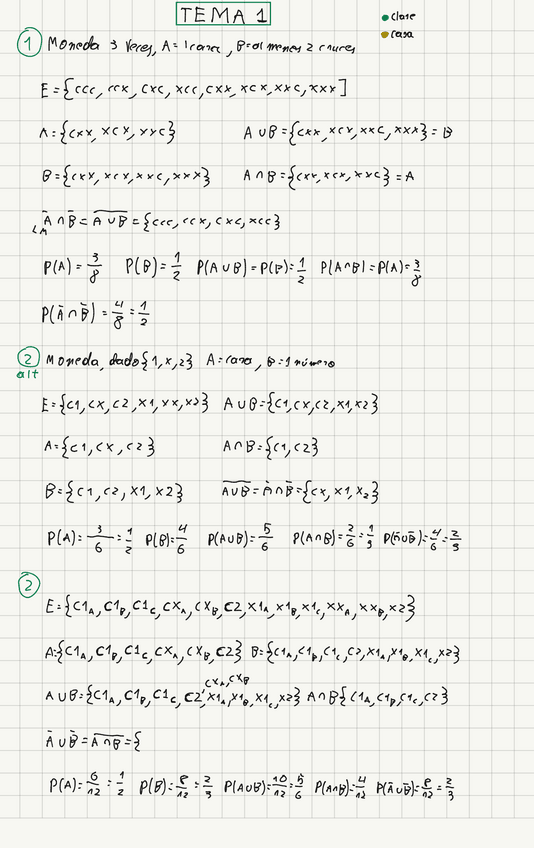 TEMA 1
clase
casa
1 Moneda 3 veces, A = 1 cara, B = al menos 2 cruces
E = {ccc, ccx, cxc, xcc, cxx, xcx, xxc, xxx]
A = {cxx, xcx, xxc} A ∪ B = {cxx, xcx, xxc, xxx} = B
B = {cxx, xcx, xxc, xxx} A ∩ B = {cxx, xcx, xxc} = A
Ā ∩ B̄ = \overline{A ∪ B} = {ccc, ccx, cxc, xcc}
P(A) = 3/8 P(B) = 1/2 P(A ∪ B) = P(B) = 1/2 P(A ∩ B) = P(A) = 3/8
P(Ā ∩ B̄) = 4/8 = 1/2
2 Moneda, dado {1, x, 2} A = cara, B = 1 número
alt
E = {c1, cx, c2, x1, xx, x2} A ∪ B = {c1, cx, c2, x1, x2}
A = {c1, cx, c2} A ∩ B = {c1, c2}
B = {c1, c2, x1, x2} \overline{A ∪ B} = Ā ∩ B̄ = {cx, x1, x2}
P(A) = 3/6 = 1/2 P(B) = 4/6 P(A ∪ B) = 5/6 P(A ∩ B) = 2/6 = 1/3 P(Ā ∪ B̄) = 4/6 = 2/3
2
E = {C1A, C1B, C1C, CXA, CXB, C2, X1A, X1B, X1C, XXA, XXB, X2}
A: {C1A, C1B, C1C, CXA, CXB, C2} B = {C1A, C1B, C1C, C2, X1A, X1B, X1C, X2}
CXA, CXB
A ∪ B = {C1A, C1B, C1C, C2, X1A, X1B, X1C, X2} A ∩ B {C1A, C1B, C1C, C2}
Ā ∪ B̄ = \overline{A ∩ B} = {
P(A) = 6/12 = 1/2 P(B) = 8/12 = 2/3 P(A ∪ B) = 10/12 = 5/6 P(A ∩ B) = 4/12 P(Ā ∪ B̄) = 8/12 = 2/3